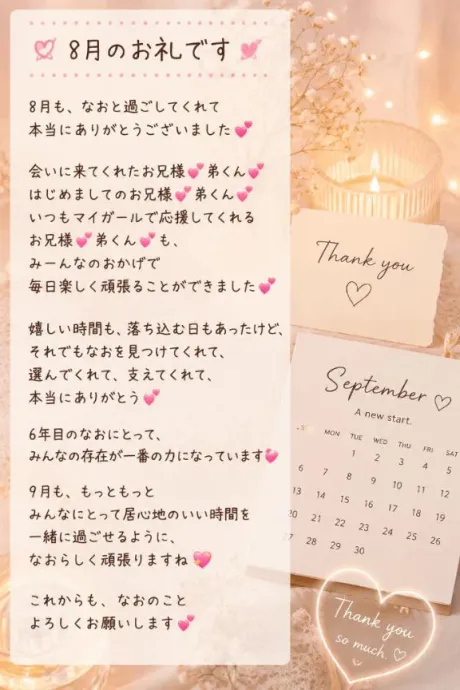 💘 8月のお礼です 💘
8月も、なおと過ごしてくれて
本当にありがとうございました💕
会いに来てくれたお兄様💕弟くん💕
はじめましてのお兄様💕弟くん💕
いつもマイガールで応援してくれる
お兄様💕弟くん💕も、
みーんなのおかげで
毎日楽しく頑張ることができました💕
嬉しい時間も、落ち込む日もあったけど、
それでもなおを見つけてくれて、
選んでくれて、支えてくれて、
本当にありがとう💕
6年目のなおにとって、
みんなの存在が一番の力になっています💞
9月も、もっともっと
みんなにとって居心地のいい時間を
一緒に過ごせるように、
なおらしく頑張りますね 💖
これからも、なおのこと
よろしくお願いします💕
Thank you
♡
September ♡
A new start.
MON TUE WED THU FRI SAT
1 2 3 4 5
6 7 8 9 10 11 12
13 14 15 16 17 18 19
20 21 22 23 24 25 26
27 28 29 30
Thank you
so much. ♡